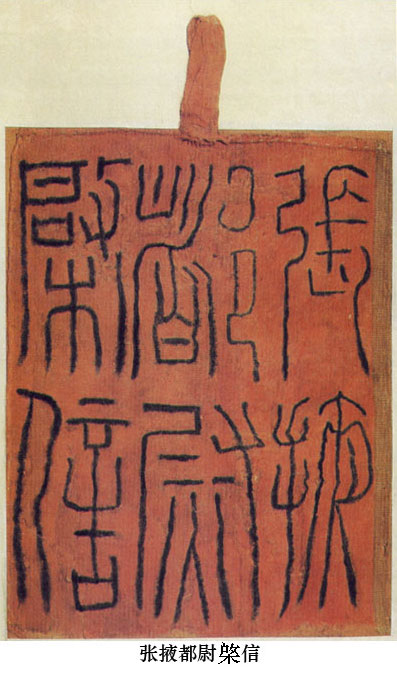 張掖
都尉
棨信
张掖都尉棨信